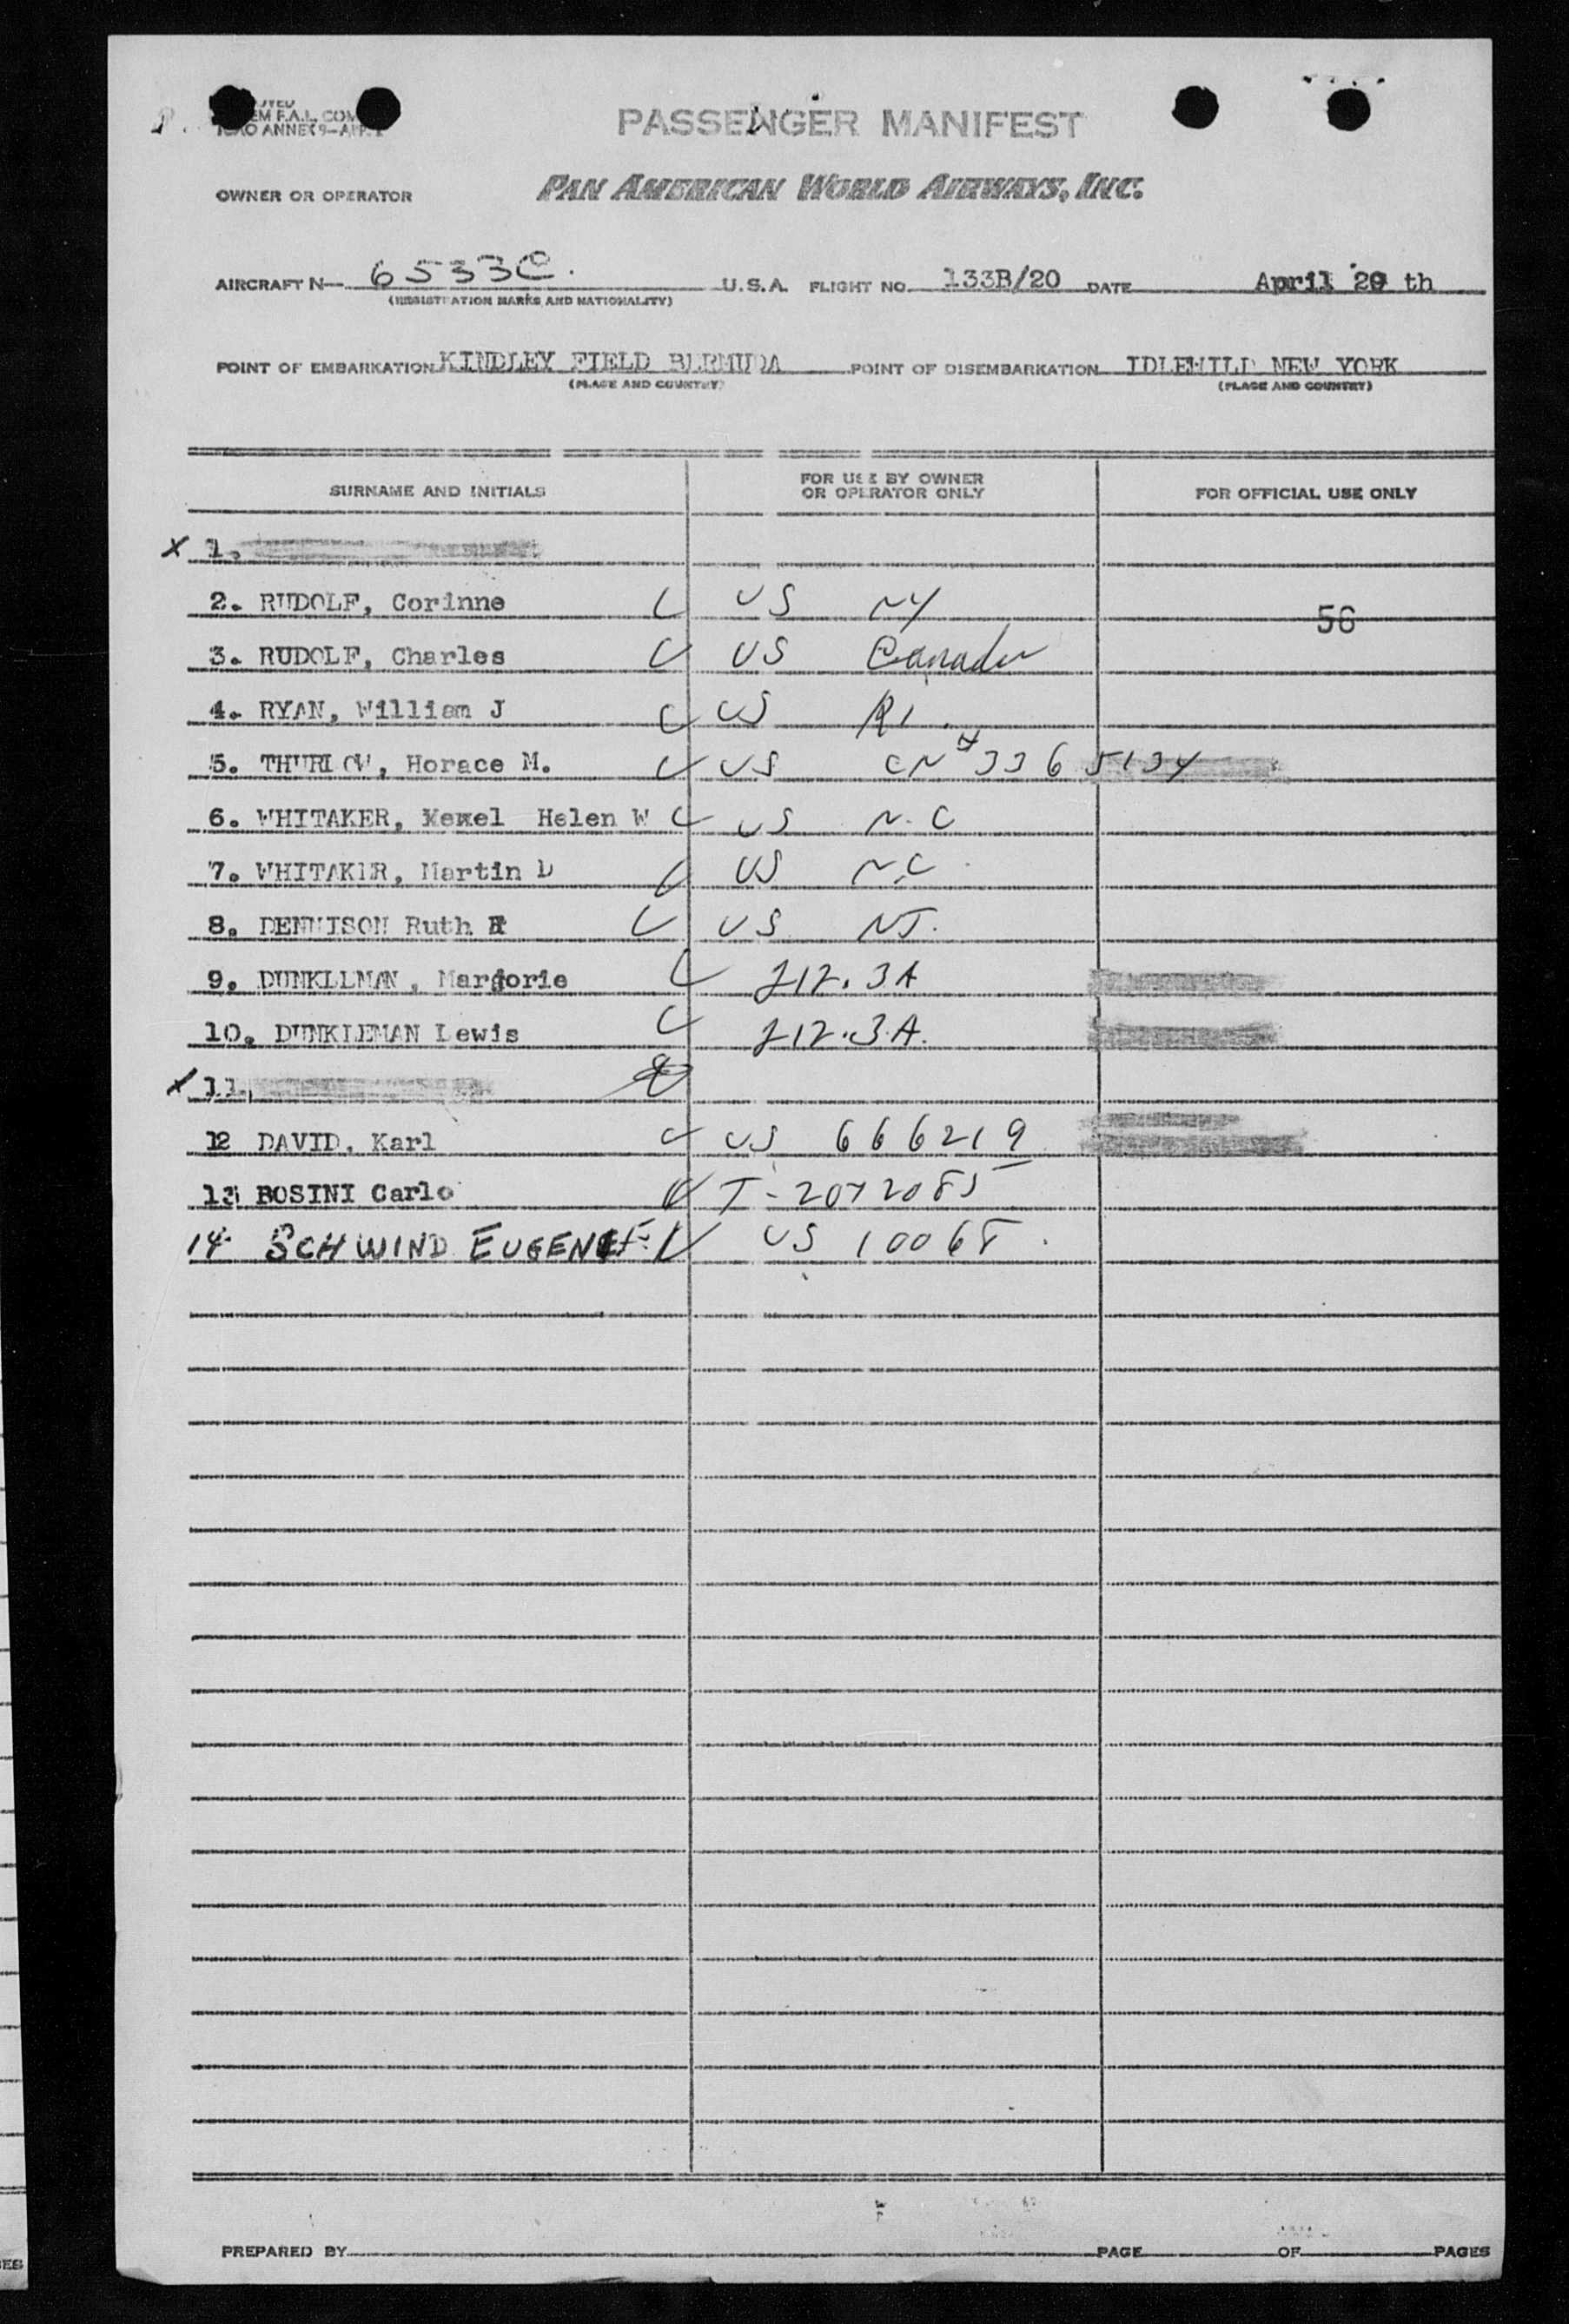 PASSENGER MANIFEST
F.A.L. COM
ANNEX 9-APP.
OWNER OR OPERATOR PAN AMERICAN WORLD AIRWAYS, INC.
AIRCRAFT N- 6533C. U.S.A. FLIGHT NO. 133B/20 DATE April 20 th
(REGISTRATION MARKS AND NATIONALITY)
POINT OF EMBARKATION KINDLEY FIELD BERMUDA POINT OF DISEMBARKATION IDLEWILD NEW YORK
(PLACE AND COUNTRY) (PLACE AND COUNTRY)
SURNAME AND INITIALS FOR USE BY OWNER OR OPERATOR ONLY FOR OFFICIAL USE ONLY
X 1.
2. RUDOLF, Corinne US NY 56
3. RUDOLF, Charles US Canada
4. RYAN, William J US RI.
5. THURLOW, Horace M. US CN #3365134
6. WHITAKER, Helen W US N.C
7. WHITAKER, Martin D US N.C.
8. DENNISON Ruth US NJ.
9. DUNKLEMAN, Marjorie 212.3A
10. DUNKLEMAN Lewis 212.3.A.
X 11.
12 DAVID, Karl US 666219
13 BOSINI Carlo I-2072085
14 SCHWIND EUGENE F. US 10068.
PREPARED BY PAGE OF PAGES